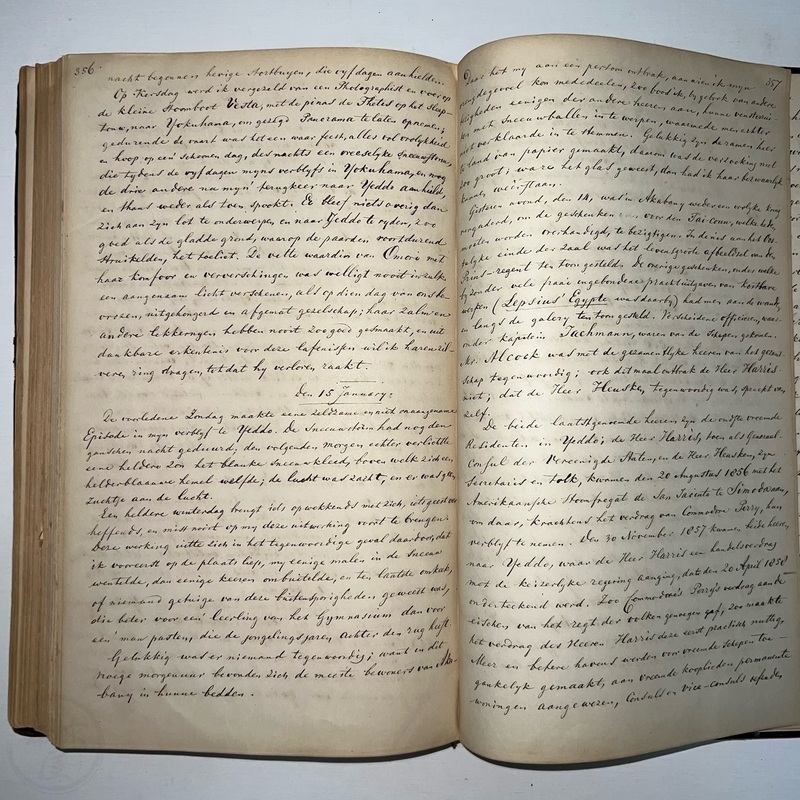 356.
nacht begonnen hevige Stortbuyen, die vyf dagen aanhielden.
Op Kersdag werd ik vergezeld van een Photographist en voer op
de kleine Stoomboot Vesta, met de pinas de Thetis op het Sleep-
touw, naar Yokuhama, om gezegd Panorama te laten opnemen;
gedurende de vaart was het een waar feest, alles vol vrolykheid
en hoop op een' schoonen dag, des nachts een vreeselyke Sneeuwstorm,
die tydens de vyf dagen myns verblyfs in Yokuhama, en nog
de drie andere na myn' terugkeer naar Yeddo aanhield,
en thans weder als toen spookt. Er bleef niets overig dan
zich aan zyn lot te onderwerpen en naar Yeddo te ryden, zoo
goed als de gladde grond, waarop de paarden voortdurend
struikelden, het toeliet. De vette waardin van Omori met
haar komfoor en ververschingen was welligt nooit in zulk
een aangenaam licht verschenen, als op dien dag van ons be-
vrozen, uitgehongerd en afgemat gezelschap; haar zalm en
andere lekkernyen hebben nooit zoo goed gesmaakt, en uit
dankbare erkentenis voor deze lafenissen wil ik haren zil-
veren ring dragen, tot dat hy verloren raakt.
Den 15 January.
De voorledene Zondag maakte eene zeldzame en niet onaangename
Episode in myn verblyf te Yeddo. De Sneeuwstorm had nog den
ganschen nacht geduurd; den volgenden morgen echter verlichtte
eene heldere zon het blanke Sneeuwkleed, boven welk zich een
helderblaauwe hemel welfde; de lucht was zacht, en er was geen
zuchtje aan de lucht.
Een heldere winterdag brengt iets opwekkends met zich, iets geest ver-
heffends, en mist nooit op my deze uitwerking voort te brengen.
Deze werking uitte zich in het tegenwoordige geval daardoor, dat
ik vooreerst op de plaats liep, my eenige malen in de Sneeuw
wentelde, dan eenige keeren ombuitelde, en ten laatste omkeek,
of niemand getuige van deze buitensporigheden geweest was,
die beter voor een' leerling van het Gymnasium dan voor
een' man pasten, die de jongelingsjaren achter den rug heeft.
Gelukkig was er niemand tegenwoordig; want in dit
vroege morgenuur bevonden zich de meeste bewoners van Aka-
bany in hunne bedden.
357
Daar het my aan een' persoon ontbrak, aan wien ik myn
kon mededeelen, zoo besloot ik, by gebrek van andere
bezigheden eenigen der andere heeren aan, hunne venster
met Sneeuwballen in te werpen, waarmede men echter
verklaarde in te stemmen. Gelukkig zyn de ramen hier
te land van papier gemaakt, daarom was de verzoeking niet
zoo groot; ware het glas geweest, dan had ik haar bezwaarlyk
kunnen weerstaan.
Gisteren avond, den 14, was in Akabany weder een vrolyke kring
vergaderd, om de geschenken, voor den Tai-coun, welke he-
moeten worden overhandigd, te bezigtigen. In de nis aan het Oos-
telyke einde der zaal was het levensgroote afbeeldsel van den
Prins-regent ten toon gesteld. De overige geschenken, onder welke
byzonder vele fraaie ingebondene prachtuitgaven van kostbare
werken (Lepsius' Egypte was daarby) had men aan de wanden
en langs de galery ten toon gesteld. Verscheidene officieren, waar-
onder kapitein Jachmann, waren van de Schepen gekomen.
Mr. Alcock was met de gezamentlyke heeren van het gezant-
schap tegenwoordig; ook dit maal ontbrak de Heer Harris
niet; dat de Heer Heusken tegenwoordig was, spreekt van
zelf.
De beide laatstgenoemde heeren zyn de oudste vreemde
Residenten in Yeddo; de Heer Harris, toen als Generaal-
Consul der Vereenigde Staten, en de Heer Heusken, zyn
Secretaris en tolk, kwamen den 20 Augustus 1856 met het
Amerikaansche Stoomfregat de San Jacinto te Simoda aan,
om daar, krachtens het verdrag van Commodore Perry, hun
verblyf te nemen. Den 30 November 1857 kwamen beide heeren
naar Yeddo, waar de Heer Harris een handelsverdrag
met de keizerlyke regering aanging, dat den 20 April 1858
onderteekend werd. Zoo Commodore's Perry's verdrag aan de
eischen van het regt der volken genoegen gaf, zoo maakte
het verdrag des Heeren Harris deze eerst practisch nuttig.
Meer en betere havens werden voor vreemde schepen toe-
gankelyk gemaakt, aan vreemde kooplieden permanente
woningen aangewezen, Consuls en vice-consuls